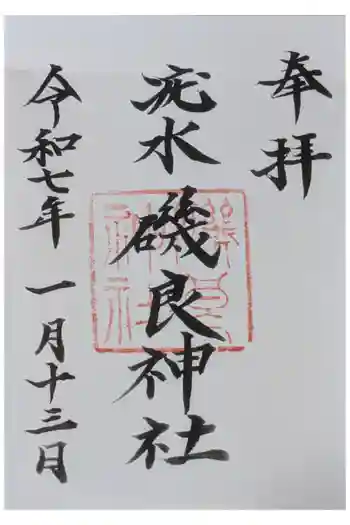 奉拝
疣水 磯良神社
令和七年 一月十三日